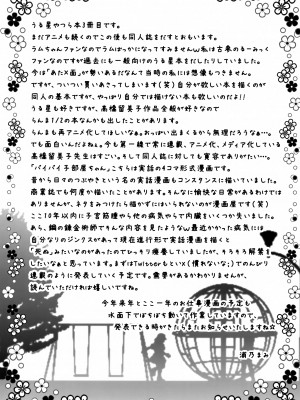 うる星やつら本3冊目です。
まだアニメも続くのでこの後も同人誌だすとおもいます。
ラムちゃんファンなのでラムばっかになってすみません。私は古来のるーみっく
ファンなのですが過去にも一般向けのうる星本をだしたりしていました。
今は「あた×面」が勢いあるだなんて当時の私には想像もつきません。
ですが、ついつい買いあさってしまいます(笑)自分が欲しい本を描くのが
同人の基本ですが、やっぱり自分では描けない本も欲しいのだよ!!
うる星も好きですが、高橋留美子作品全般が好きなので
らんま1/2の本なんかも出したことがあります。
らんまも再アニメ化してほしいなぁ。おっぱい出まくるから無理だろうなぁ…。
でも面白いんだよねぇ。今も第一線で常に連載、アニメ化、メディア化している
高橋留美子先生はすごい。そして同人誌に対しても寛容でありがたい…。
「パイパイ子部屋ちゃん」こちらは実話の4コマ形式漫画です。
昔から日々のつぶやきという名の実話漫画もコンスタントに描いていました。
商業誌でも何度か描いたことがあります。そんなに愉快な日常があるわけでは
ありませんが、ネタをみつけたら描かずにはいられないのが漫画屋です(笑)
ここ10年以内に子宮筋腫やら他の病気やらで内臓をいくつか失いました。
あら、鋼の錬金術師でそんな内容を見たような。最近かかった病気には
自分なりのジンクスがあって現在進行形で実話漫画を描くと
「死ぬ」みたいなのがあったのでひっそり療養していましたが、そろそろ解禁を
したいなぁと思っています。まずはTwitterもといX(慣れないな;)でのんびり
連載のように発表していく予定です。衝撃があるかわかりませんが、
読んでいただければ嬉しいです。
今年来年とここ一年のお仕事漫画の予定も
水面下でぼちぼち動いて作業していますので、
発表できる時がきたらまたお知らせいたしますね☆
浦乃まみ